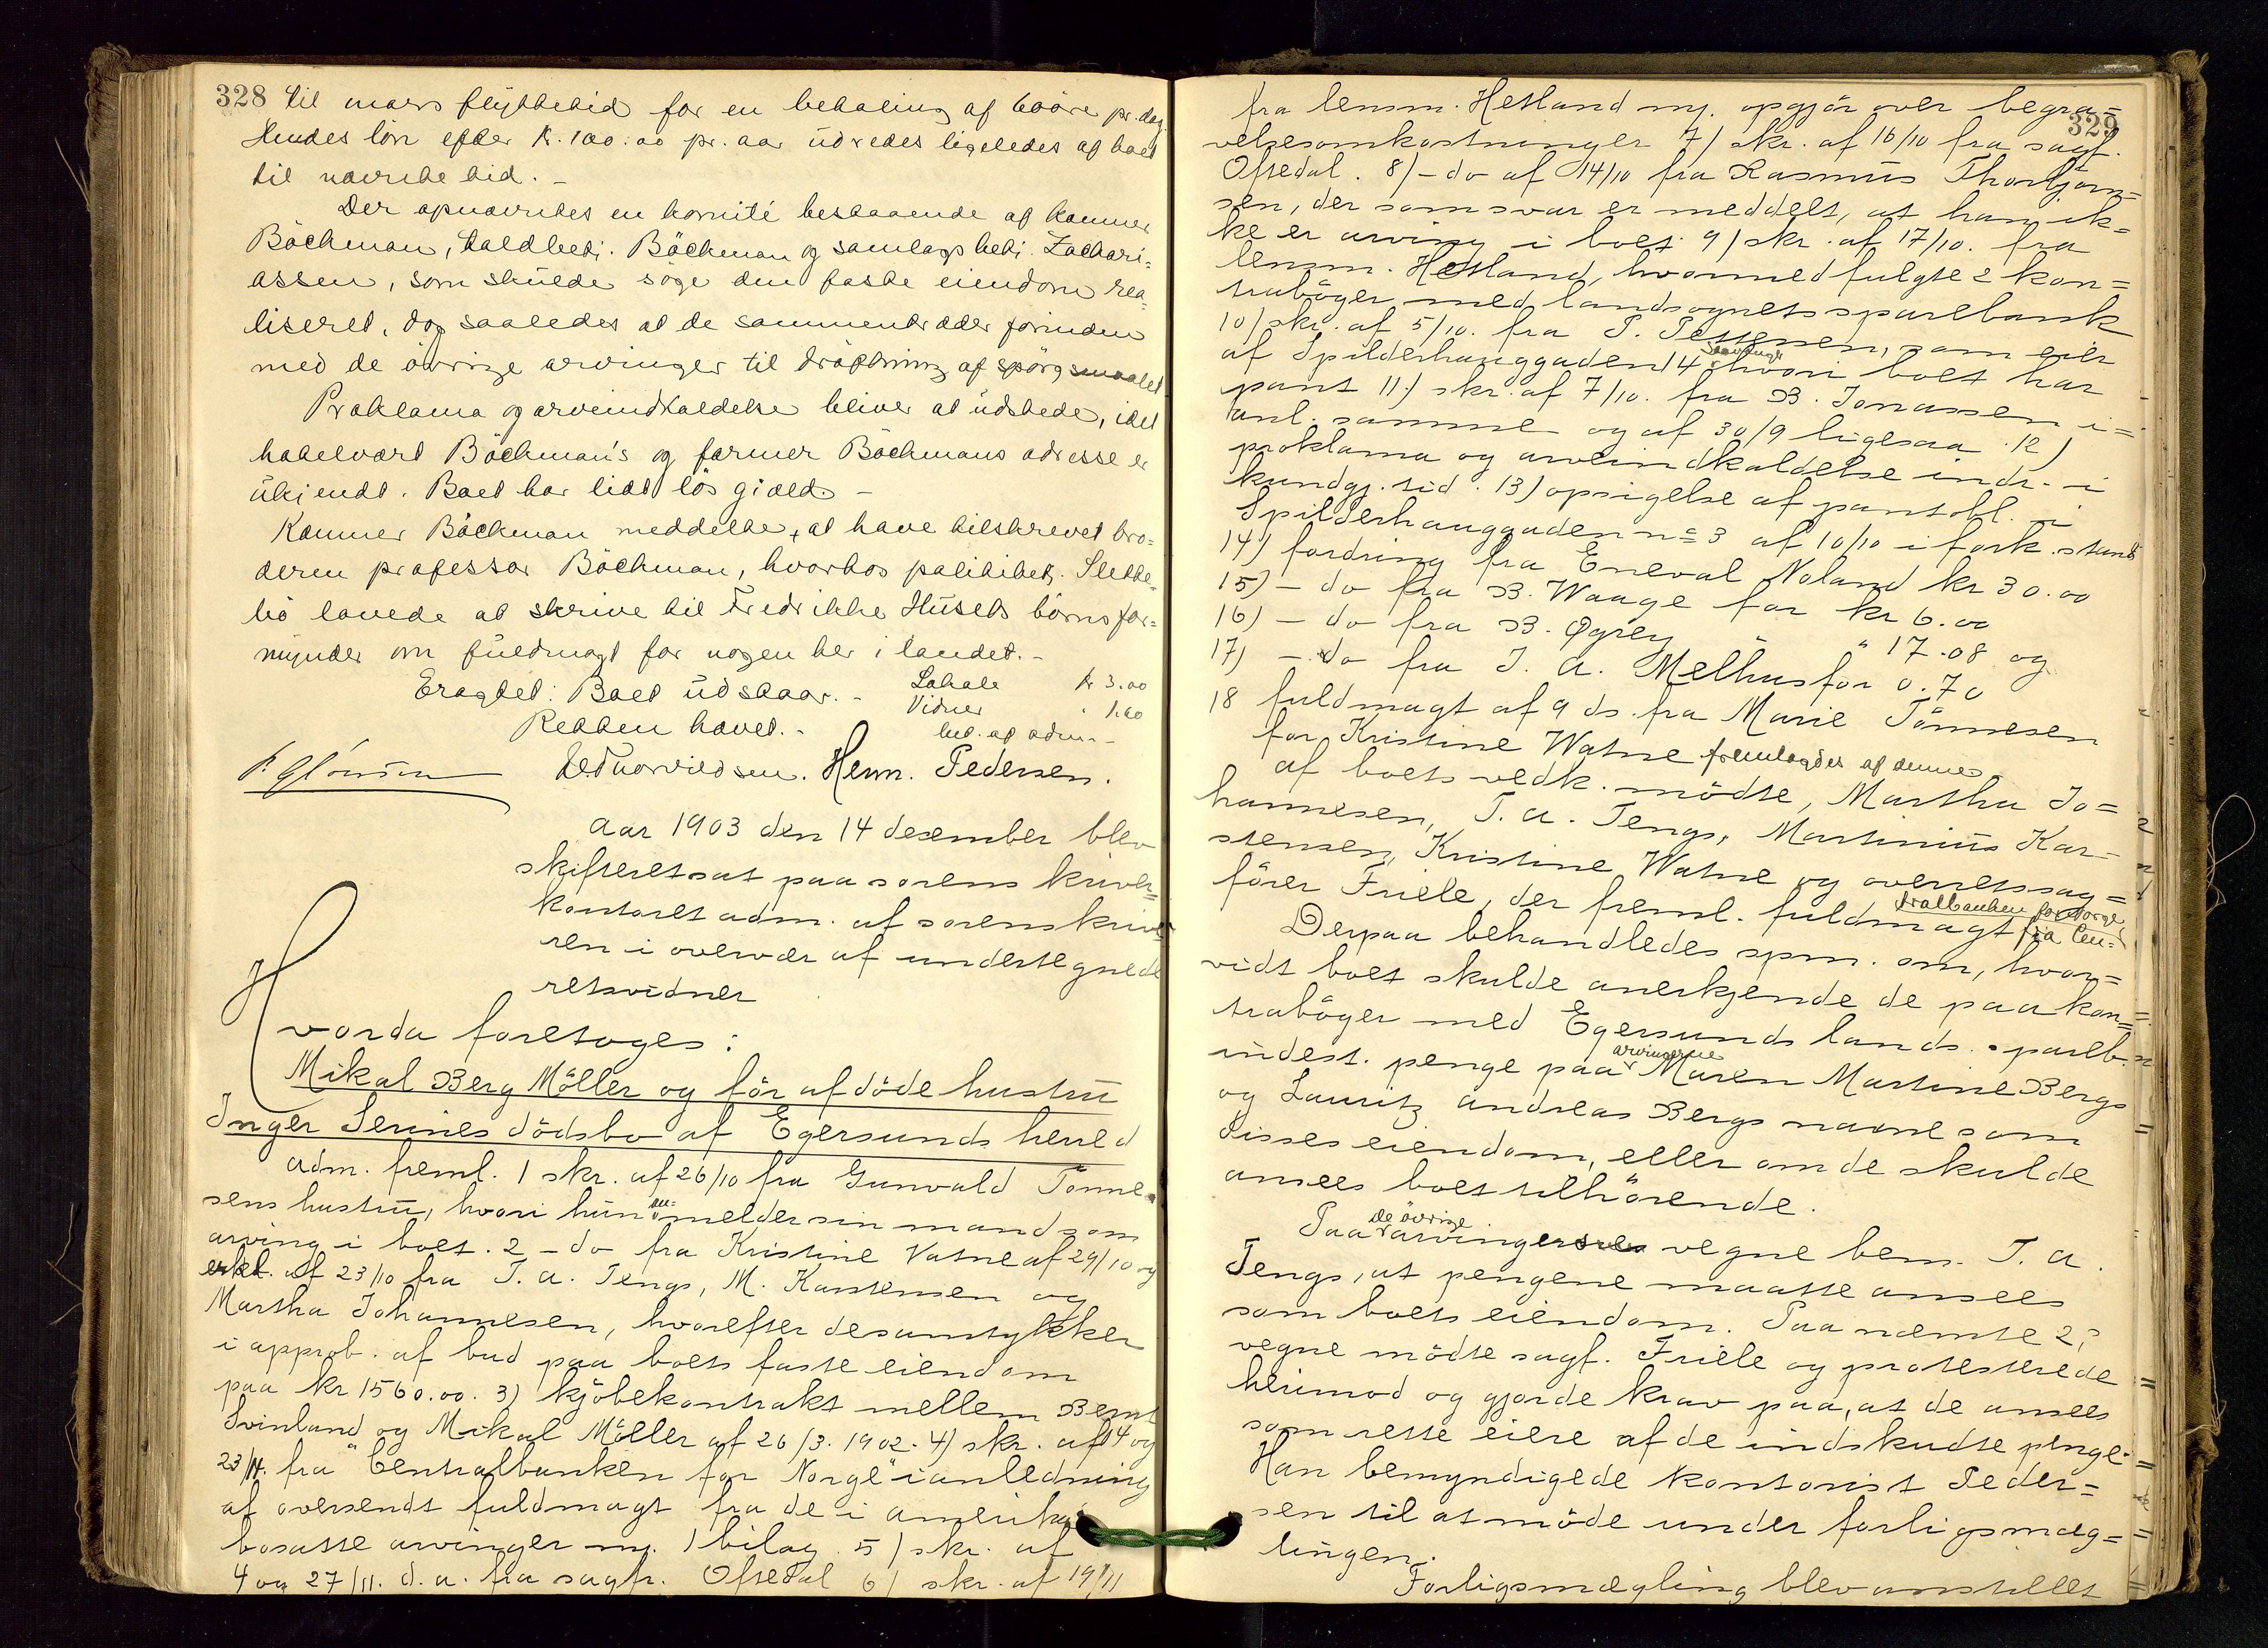 328 til mars flyttetid for en betaling af 60 øre pr. dag.
Hendes løn efter k. 100.00 pr. aar udredes ligeledes af boet
til nævnte tid. –
Der opnævntes en komité bestaaende af kamner
Böckman, toldbetj. Böckman og samlagsbetj. Zachari=
assen, som skulde søge den faste eiendom rea=
liseret, dog saaledes at de sammentræder forinden
med de øvrige arvinger til drøftning af spørgsmaalet
Proklama og arveindkaldelse bliver at udstede, idet
hotelvært Böckman's og farmer Böckmans adresse er
ukjendt. Boet har lidt løs gjæld. –
Kamner Böckman meddelte, at have tilskrevet bro=
deren professor Böckman, hvorhos politibetj. Slette=
bö lovede at skrive til Fredrikke Husets börns for=
mynder om fuldmagt for nogen her i landet. –
Eragtet: Boet udstaar. – Lokale k 3.00
Vidner " 1.60
Retten hævet. – bet. af adm. –
Hem. Pedersen.
Aar 1903 den 14 desember blev
skifteret sat paa sorenskriver=
kontoret adm. af sorenskrive=
ren i overvær af undertegnede
retsvidner
Hvorda foretoges:
Mikal Berg Möller og för afdöde hustru
Inger Serines dödsbo af Egersunds herred
Adm. freml. 1 skr. af 26/10 fra Gunvald Tönne=
sens hustru, hvori hun anmelder sin mand som
arving i boet. 2 – do fra Kristine Vatne af 29/10 og
erkl. af 23/10 fra T. A. Tengs, M. Karstensen og
Martha Johannesen, hvorefter de samtykker
i approb. af bud paa boets faste eiendom
paa kr 1560.00. 3) kjöbekontrakt mellem Bernt
Svinland og Mikal Möller af 26/3. 1902. 4) skr. af 14 og
23/11. fra "Centralbanken for Norge" i anledning
af oversendt fuldmagt fra de i Amerika
bosatte arvinger m. 1 bilag 5) skr. af
4 og 27/11. d. a. fra sagfr. Ofstedal 6) skr. af 19/11
329
fra lensm. Hetland m. opgjör over begra=
velsesomkostninger 7) skr. af 16/10 fra sagf.
Ofstedal. 8) – do af 14/10 fra Rasmus Thorbjörn=
sen, der som svar er meddelt, at han ik=
ke er arving i boet. 9) skr. af 17/10. fra
lensm. Hetland, hvormed fulgte 2 kon=
trabøger med landsognets sparebank
10) skr. af 5/10. fra T. som eier
af Spilderhauggaden 14 hvori boet har
pant 11) skr. af 7/10. fra B. Jonassen i=
anl. samme og af 30/9 ligesaa. 12)
proklama og arveindkaldelse indr. i
kundgj. tid. 13) opsigelse af pantobl. i
Spilderhauggaden n= 3 af 10/10 i fork. stand
14) fordring fra Eneval Noland kr 30.00
15) – do fra B. Waage for kr 6.00
16) – do fra B. Øgrey " 17.08 og
17) – do fra J. A. Melhus for 0.70
18 fuldmagt af 9 ds. fra Marie Tönnesen
for Kristine Watne fremlagdes af denne.
af boets vedk. mödte, Martha Jo=
hannesen, T. A. Tengs, Martinius Kar=
stensen, Kristine Watne og overretssag=
förer Friele, der freml. fuldmagt fra Cen=
tralbanken for Norge
Derpaa behandledes spm. om, hvor=
vidt boet skulde anerkjende de paa kon=
trabøger med Egersunds lands. spareb.
indest. penge paa arvingerne Maren Martine Bergs
og Lauritz Andreas Bergs navne som
disses eiendom, eller om de skulde
ansees boet tilhörende.
Paa de övrige arvingers vegne bem. T. A.
Tengs, at pengene maatte ansees
som boets eiendom. Paa nævnte 2's
vegne mödte sagf. Friele og protesterede
herimod og gjorde krav paa, at de ansees
som rette eiere af de indskudte penge.
Han bemyndigede kontorist Peder=
sen til at möde under forligsmæg=
lingen.
Forligsmægling blev anstillet